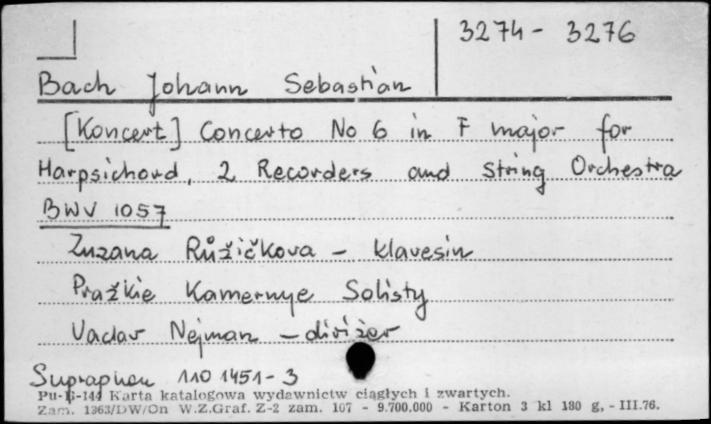 3274 - 3276
Bach Johann Sebastian
[Koncert] Concerto No 6 in F major for
Harpsichord, 2 Recorders and String Orchestra
BWV 1057
Zuzana Růžičkova - klavesin
Pražkie Kamernye Solisty
Vaclav Nejman - diriżer
Supraphon 110 1451-3
Pu-B-144 Karta katalogowa wydawnictw ciągłych i zwartych.
Zam. 1363/DW/On W.Z.Graf. Z-2 zam. 107 - 9.700.000 - Karton 3 kl 180 g, - III.76.